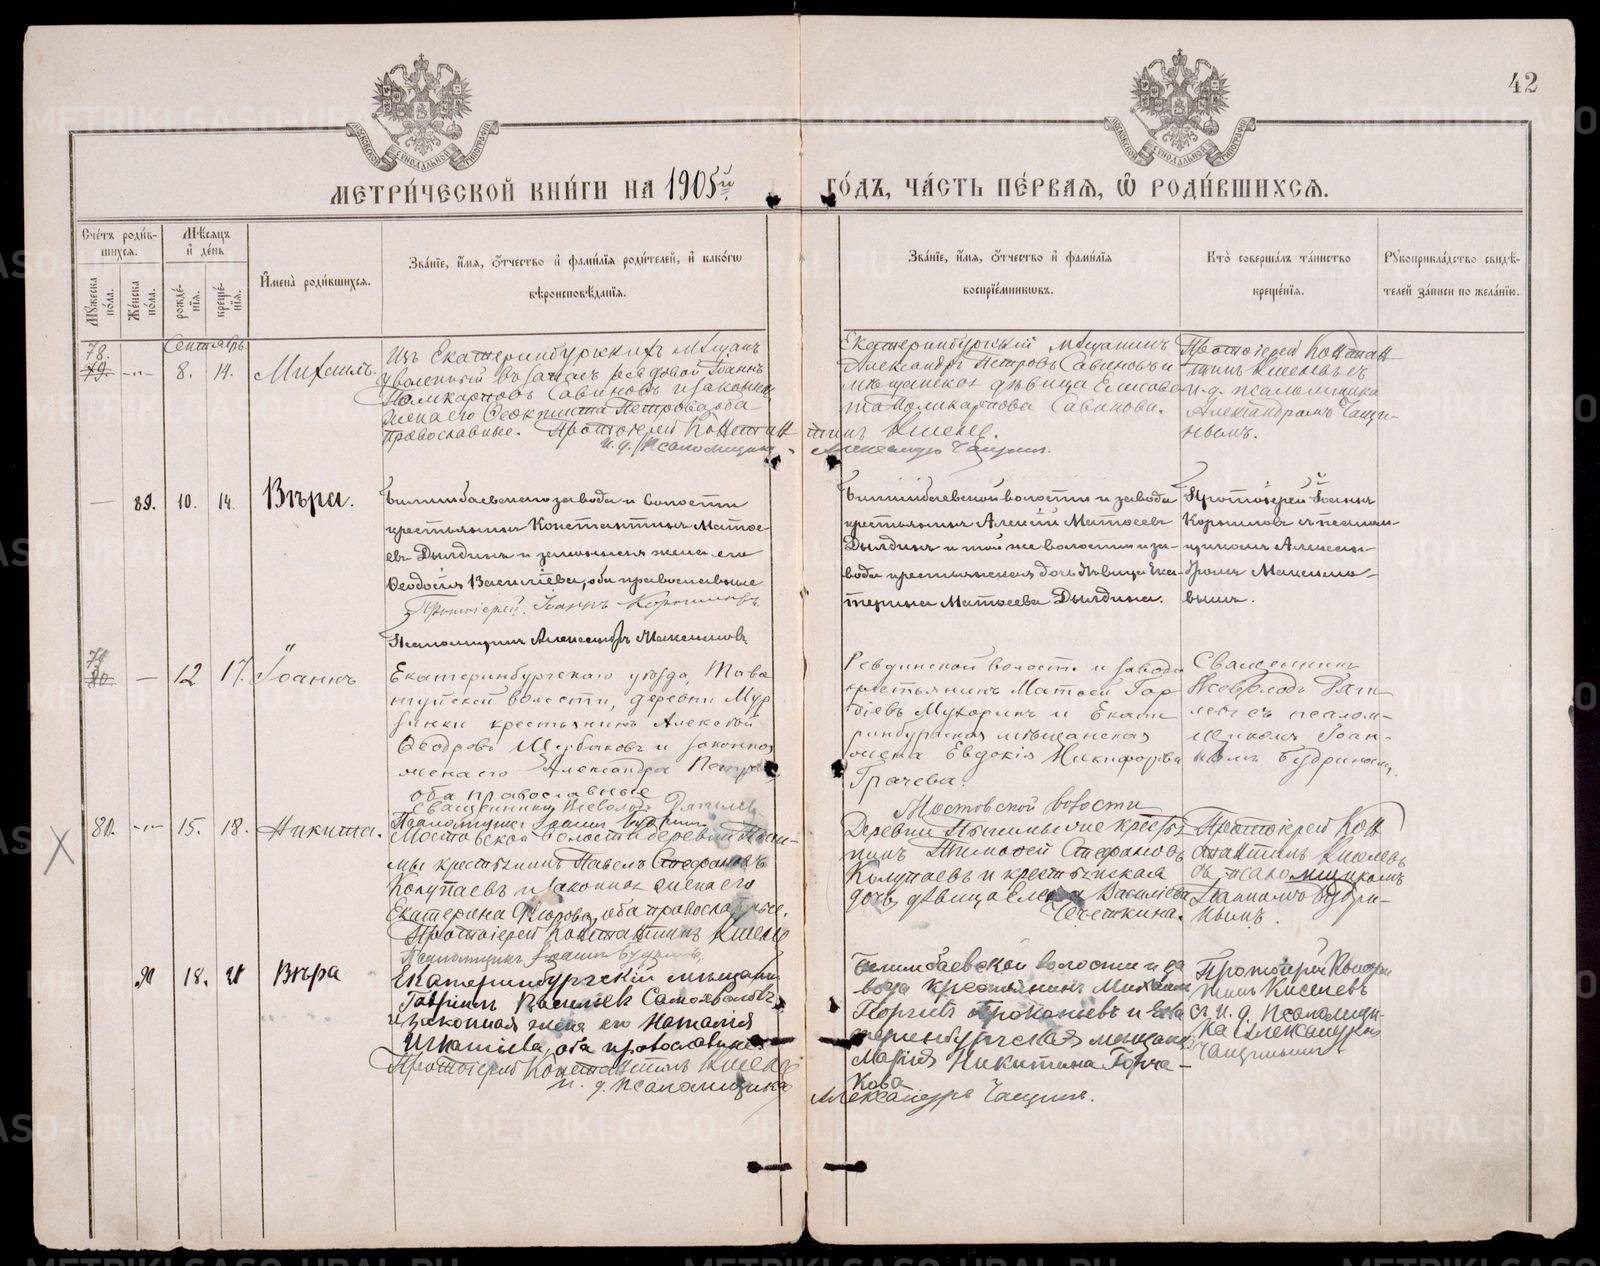 42
МОСКОВСКОЙ СИНОДАЛЬНОЙ ТИПОГРАФІИ
МОСКОВСКОЙ СИНОДАЛЬНОЙ ТИПОГРАФІИ
МЕТРИ́ЧЕСКОЙ КНИ́ГИ НА 1905й
ГО́ДЪ, ЧА́СТЬ ПЕ́РВАѦ, Ѡ҆ РОДИ́ВШИХСѦ.
Сче́тъ роди́в-
шихсѧ.
Мѣ́сѧцъ
и҆ де́нь
Мꙋ́жеска
по́ла.
Же́нска
по́ла.
рожде́-
нїѧ.
креще́-
нїѧ.
И҆мена̀ роди́вшихсѧ.
Зва́нїе, и҆́мѧ, ѻ҆́тчество и҆ фами́лїѧ роди́телей, и҆ како́гѡ
вѣроисповѣ́данїѧ.
Зва́нїе, и҆́мѧ, ѻ҆́тчество и҆ фами́лїѧ
воспрїе́мникѡвъ.
Кто̀ соверша́лъ та́инство
креще́нїѧ.
Рꙋкоприкла́дство свидѣ́-
телей за́писи по жела́нїю.
Сентябрь
78.
79. -„- 8. 14. Михаилъ.
Изъ Екатеринбургскихъ мѣщанъ
уволенный въ запасъ рядовой Іоаннъ
Поликарповъ Савиновъ и законная
жена его Ѳеоктиста Петрова, оба
православные. Протоіерей Константинъ Киселевъ.
и. д. Псаломщика Александръ Чащинъ.
Екатеринбургскій мѣщанинъ
Александръ Петровъ Савиновъ и
мѣщанская дѣвица Елисаве-
та Поликарпова Савинова.
Протоіерей Констан-
тинъ Киселевъ съ
и. д. псаломщика
Александромъ Чащи-
нымъ.
— 89. 10. 14. Вѣра.
Билимбаевскаго завода и волости
крестьянинъ Константинъ Матѳе-
евъ Дылдинъ и законная жена его
Ѳеодосія Василіева, оба православные
Протоіерей Іоаннъ Корниловъ.
Псаломщикъ Александръ Максимовъ.
Билимбаевской волости и завода
крестьянинъ Алексій Матѳеевъ
Дылдинъ и той же волости и за-
вода крестьянская дочь дѣвица Ека-
терина Матѳеева Дылдина.
Протоіерей Іоаннъ
Корниловъ съ псалом-
щикомъ Алексан-
дромъ Максимо-
вымъ.
79
80 — 12 17. Іоаннъ
Екатеринбургскаго уѣзда, Тава
туйской волости, деревни Мур
зинки крестьянинъ Алексѣй
Ѳеодоровъ Щербаковъ и законная
жена его Александра Петрова,
оба православные
Священникъ Всеволодъ
Псаломщикъ Іоаннъ Будринъ.
Ревдинской волости и завода
крестьянинъ Матѳей Гор
дѣевъ Мухоринъ и Екате
ринбургская мѣщанская
жена Евдокія Никифорова
Грачева.
Священникъ
Всеволодъ
съ псалом-
щикомъ Іоан-
номъ Будринымъ.
80. -„- 15. 18. Никита.
Мостовской волости деревни Пыш-
мы крестьянинъ Павелъ Стефановъ
Колупаевъ и законная жена его
Екатерина Флорова, оба православные.
Протоіерей Константинъ Киселевъ
Псаломщикъ Іоаннъ Будринъ.
Мостовской волости
Деревни Пышмы крестья
нинъ Тимоѳей Стефановъ
Колупаевъ и крестьянская
дочь дѣвица Елена Василіева
Чечеткина.
Протоіерей Кон
стантинъ Киселевъ
съ псаломщикомъ
Іоанномъ Будри-
нымъ.
90 18. 21 Вѣра
Екатеринбургскій мѣщанинъ
Гавріилъ Василіевъ Самохваловъ
и законная жена его Наталія
Игнатіева, оба православные
Протоіерей Константинъ Киселевъ
и. д. псаломщика Александръ Чащинъ.
Билимбаевской волости и за
вода крестьянинъ Михаилъ
Георгіевъ Прокопьевъ и Ека
теринбургская мѣщанка
Марія Никитина Горча-
кова
Протоіерей Констан
тинъ Киселевъ
съ и. д. псаломщи-
ка Александромъ
Чащинымъ
METRIKI.GASO-URAL.RU